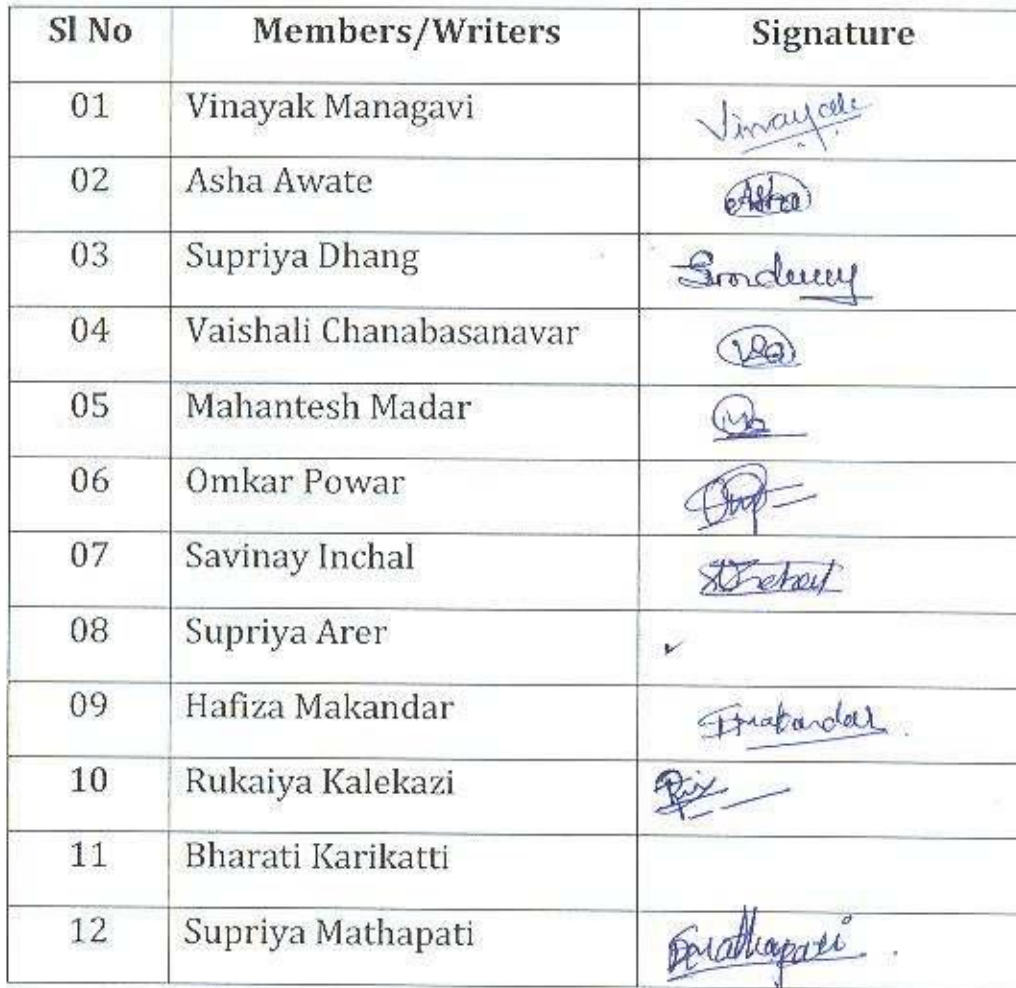 Sl No Members/Writers Signature
01 Vinayak Managavi Vinayak
02 Asha Awate Asha
03 Supriya Dhang
04 Vaishali Chanabasanavar
05 Mahantesh Madar
06 Omkar Powar
07 Savinay Inchal
08 Supriya Arer
09 Hafiza Makandar
10 Rukaiya Kalekazi
11 Bharati Karikatti
12 Supriya Mathapati